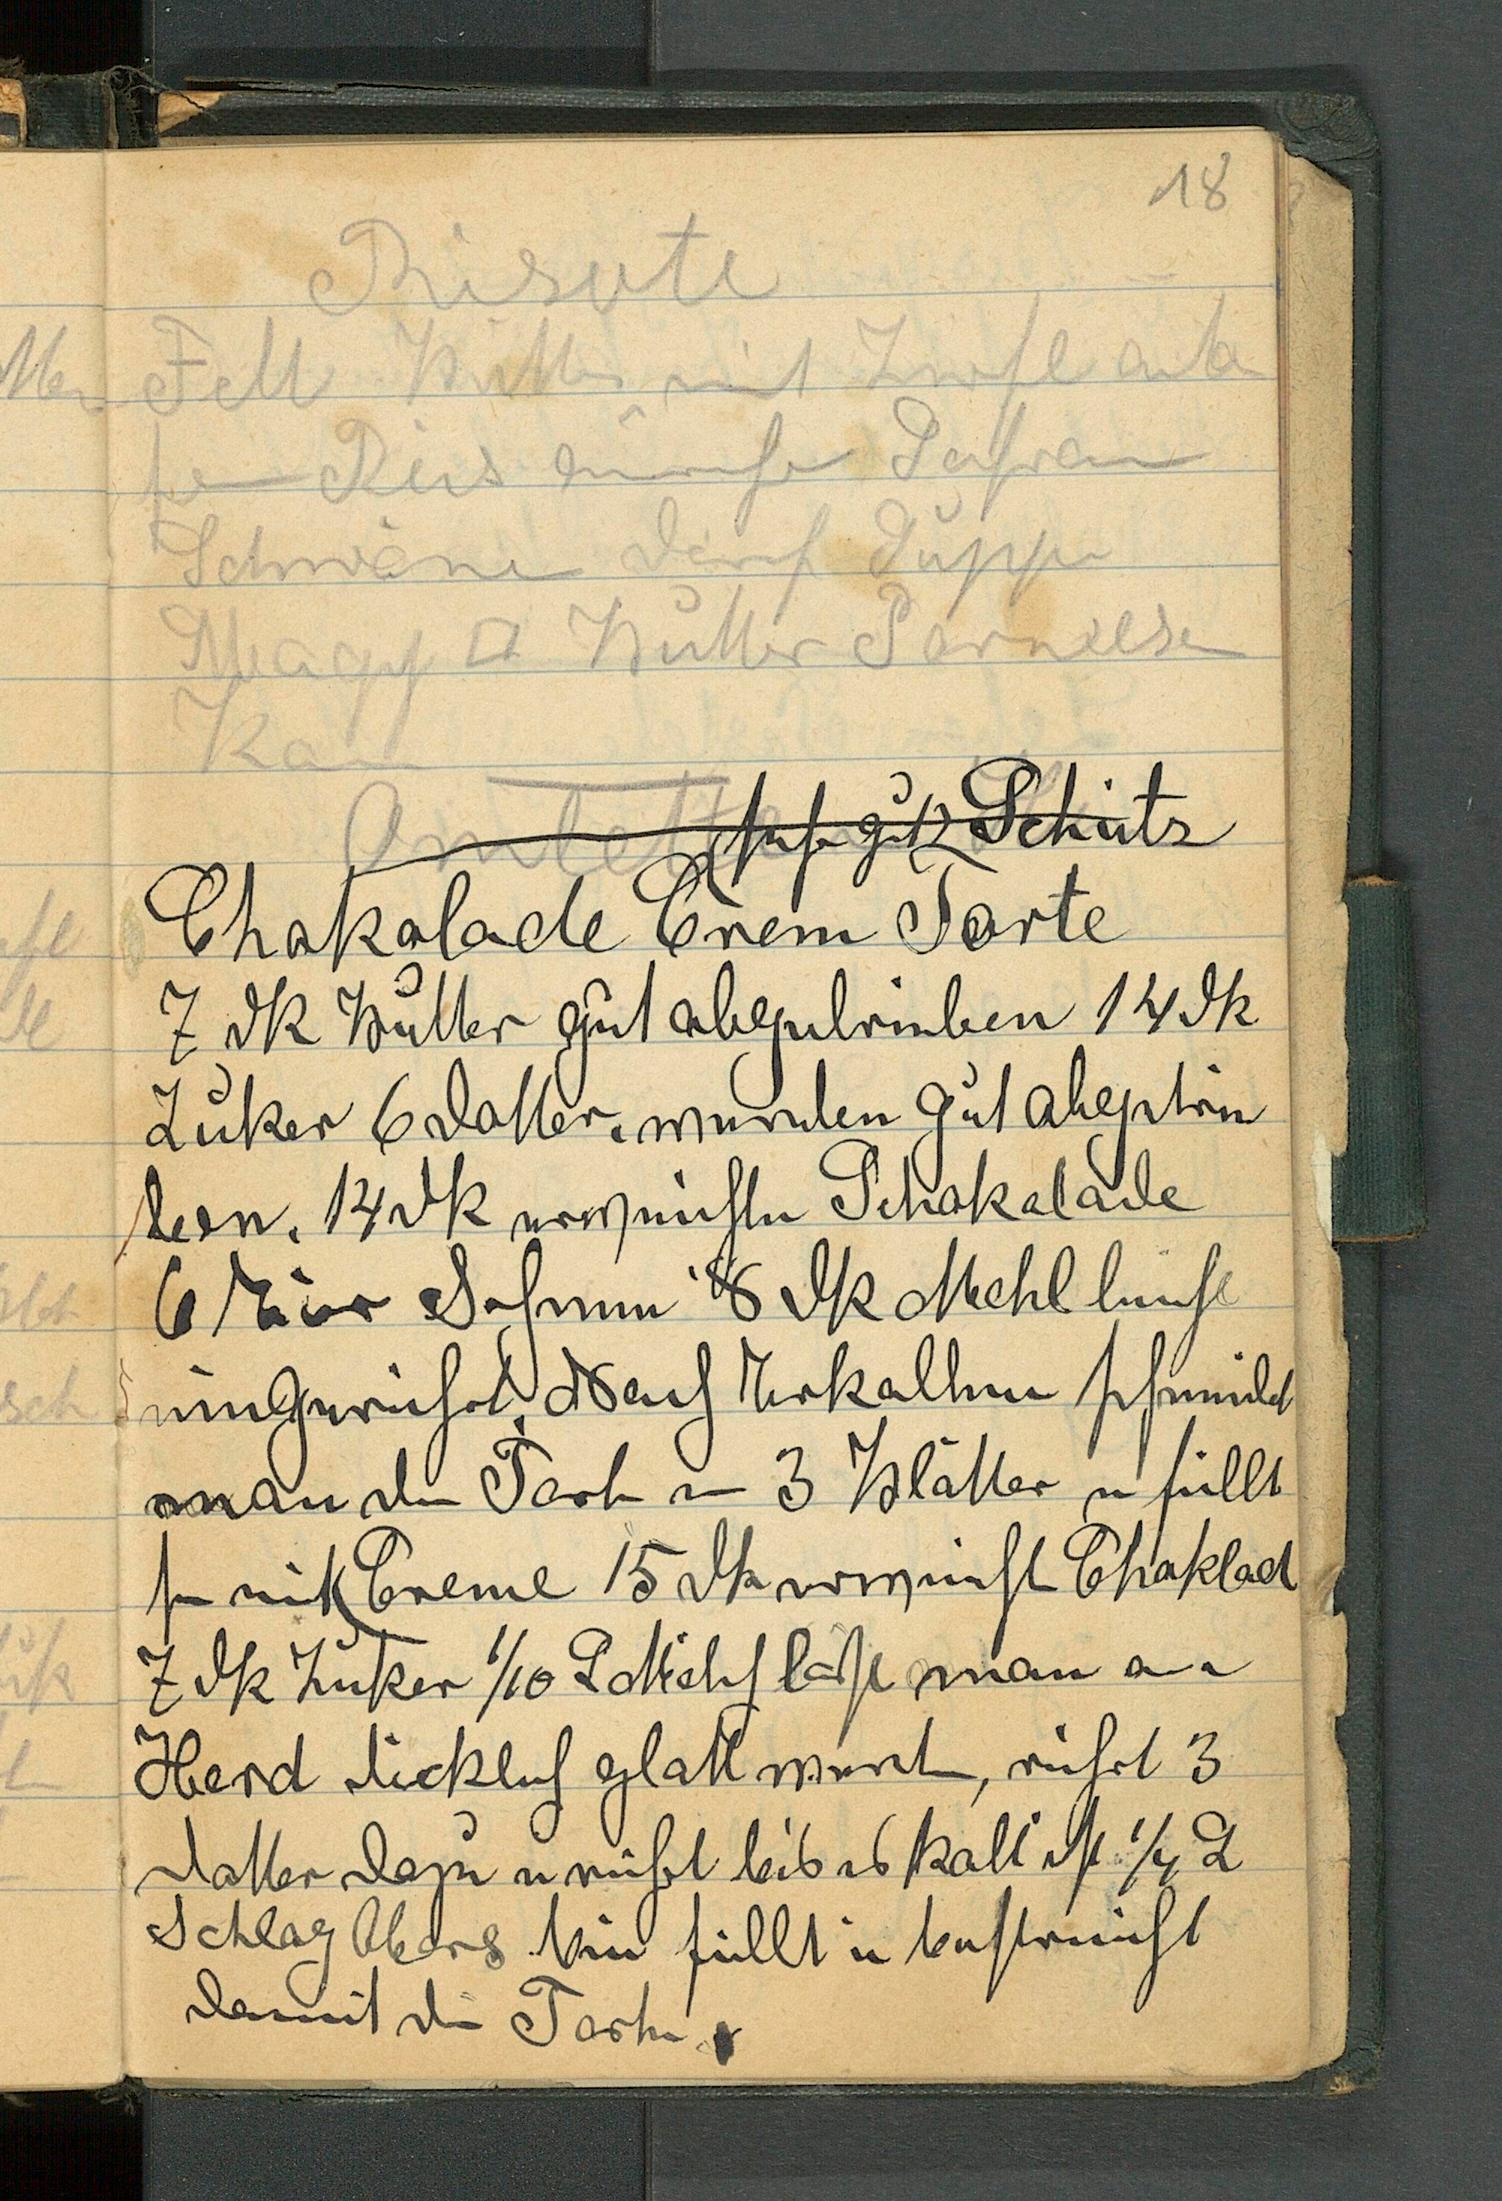 18
Risote
Fett Butter mit Zwifl anla
fen Reis Safran
Schwäme Suppe
Magy Butter Parmesan
Kän
Omlette
sehr gut Schütz
Chokolade Crem Torte
7 dk Butter gut abgetrieben 14 dk
Zuker 6 Dotter werden gut abgetrie
ben. 14 dk erweichte Schokolade
6 Eier Schnee 8 dk Mehl leicht
eingerührt. Nach Erkalten schneidet
man die Torte in 3 Blätter u füllt
sie mit Creme 15 dk erweichte Choklad
7 dk Zuker 1/10 L Milch läßt man am
Herd dicklich glatt werden, rührt 3
Dotter dazu u rührt bis es kalt ist 1/4 L
Schlag Obers füllt u bestreicht
damit die Torte.